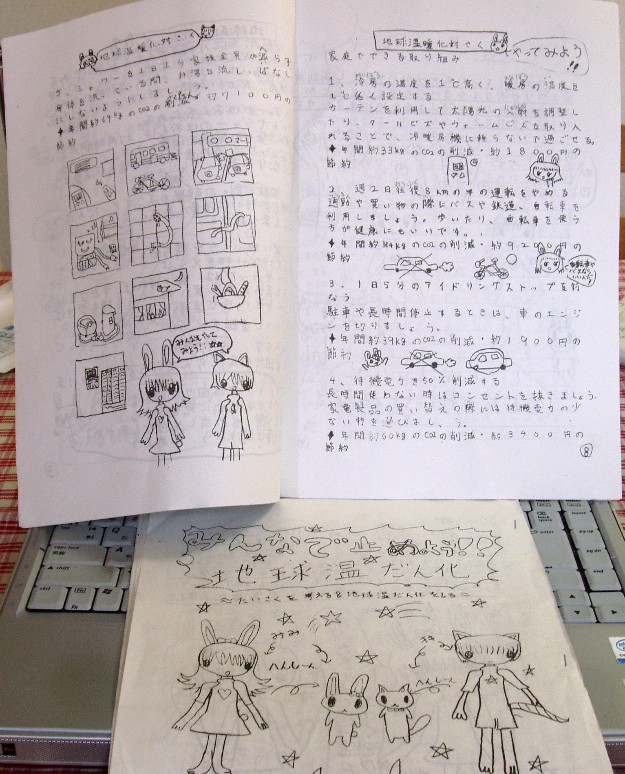 地球温暖化対さく
◆年間約69kgのCO2の削減
節約
みんなもやって
みよう!!
地球温暖化対さく
やってみよう!!
家庭でできる取り組み
1、冷房の温度を1℃高く、暖房の温度を
1℃低く設定する
カーテンを利用して太陽光の入射を調整し
たり、クールビズやウォームビズを取り入
れることで、冷暖房機に頼らないで過ごせる。
◆年間約33kgのCO2の削減・約1800円の
節約
2、週2日往復8kmの車の運転をやめる
通勤や買い物の際にバスや鉄道、自転車を
利用しましょう。歩いたり、自転車を使う
方が健康にもいいです。
◆年間約184kgのCO2の削減・約9200円の
節約
3、1日5分のアイドリングストップを行
なう
駐車や長時間停止するときは、車のエンジ
ンを切りましょう。
◆年間約39kgのCO2の削減・約1900円の
節約
4、待機電力を50%削減する
長時間使わない時はコンセントを抜きましょう。
家電製品の買い替えの際には待機電力の少
ない物を選びましょう。
◆年間約60kgのCO2の削減・約3400円の
節約
8
みんなで止めよう!!
地球温だん化
~たいさくを考える&地球温だん化をしる~
みみ
へんしーん
へんしーん